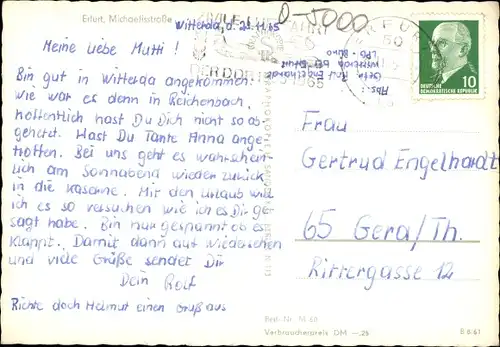 Erfurt, Michaelisstraße
Witterda, d. 23.11.65
D-5000
Meine liebe Mutti!
Bin gut in Witterda angekommen.
wie war es denn in Reichenbach,
hoffentlich hast Du Dich nicht so ab-
gehetzt. Hast Du Tante Anna ange-
troffen. Bei uns geht es wahrschein-
lich am Sonnabend wieder zurück
in die Kaserne. Mit den Urlaub will
ich es so versuchen wie ich es Dir ge-
sagt habe. Bin nur gespannt ob es
klappt. Damit dann auf Wiedersehen
und viele Grüße sendet Dir
Dein Rolf
Richte doch Helmut einen Gruß aus
Abs.:
Engelhardt
Witterda bei Erfurt
LPG - Büro
DER DDR
1965
10
DEUTSCHE
DEMOKRATISCHE REPUBLIK
Frau
Gertrud Engelhardt
65 Gera/Th.
Rittergasse 12
Best. Nr. M 68
Verbraucherpreis DM —.25